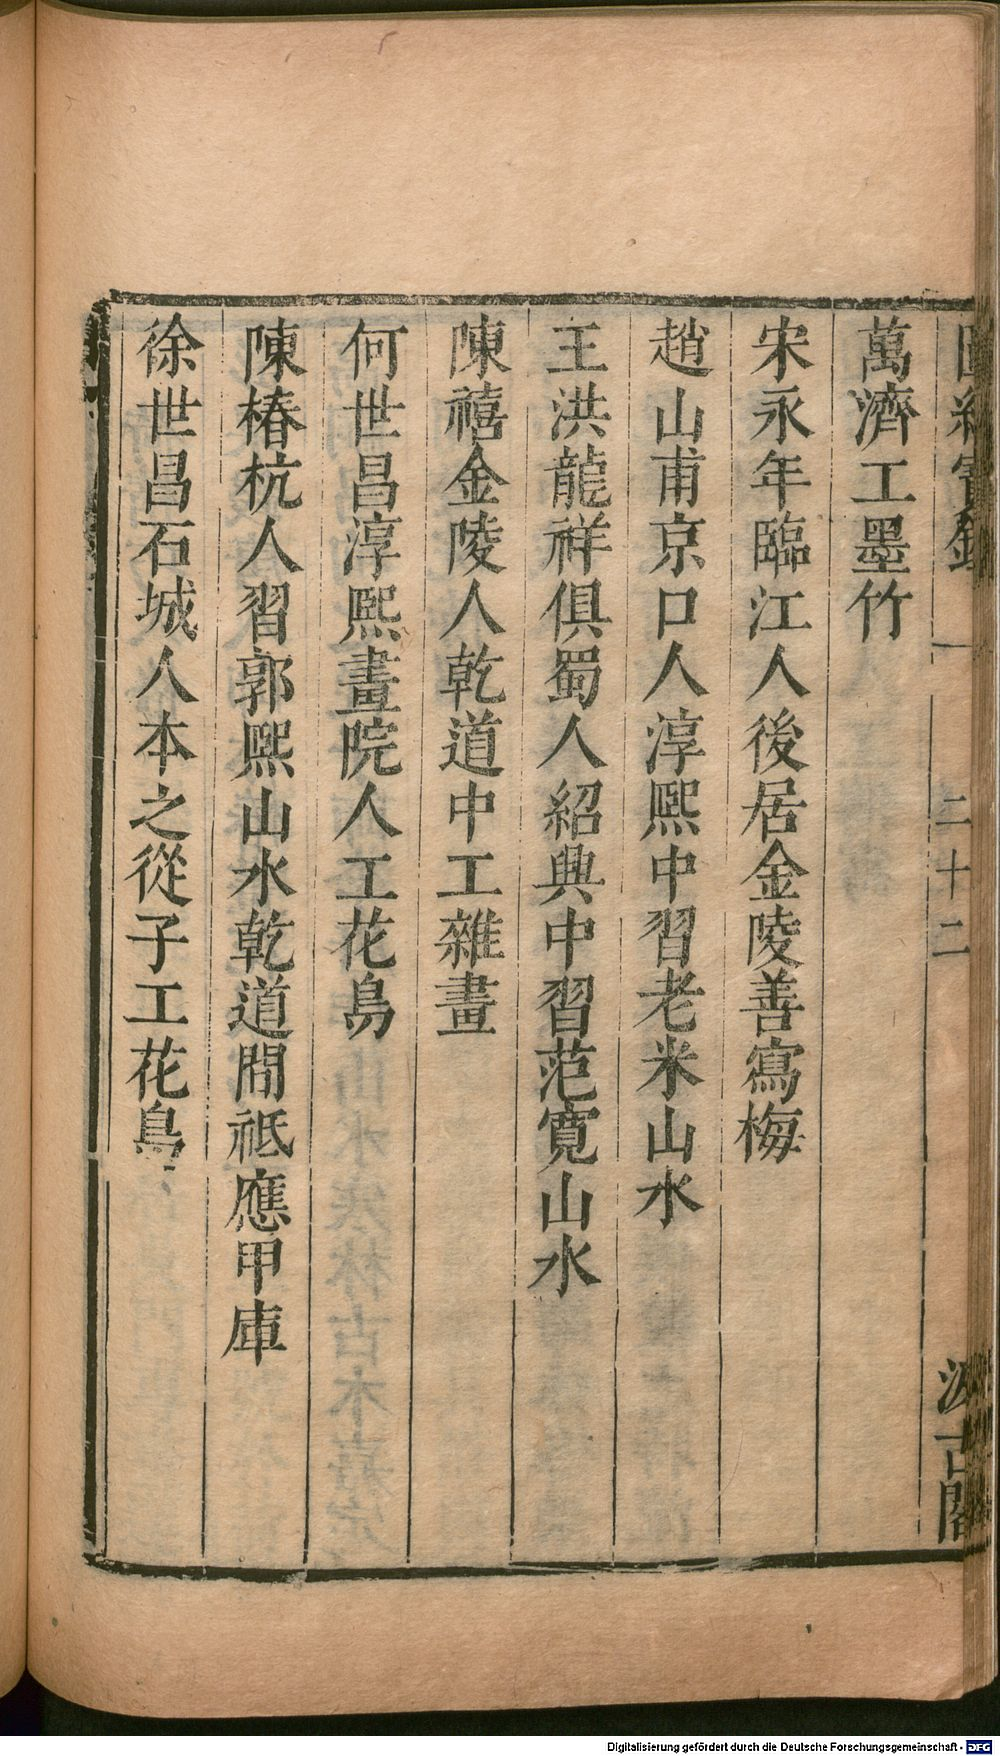 一
二十二
萬濟工墨竹
宋永年臨江人後居金陵善寫梅
趙山甫京口人淳熙中習老米山水
王洪龍祥俱蜀人紹興中習范寬山水
陳禧金陵人乾道中工雜畫
何世昌淳熙畫院人工花鳥
陳椿杭人習郭熙山水乾道間祗應甲庫
徐世昌石城人本之從子工花鳥
Digitalisierung gefördert durch die Deutsche Forschungsgemeinschaft - DFG